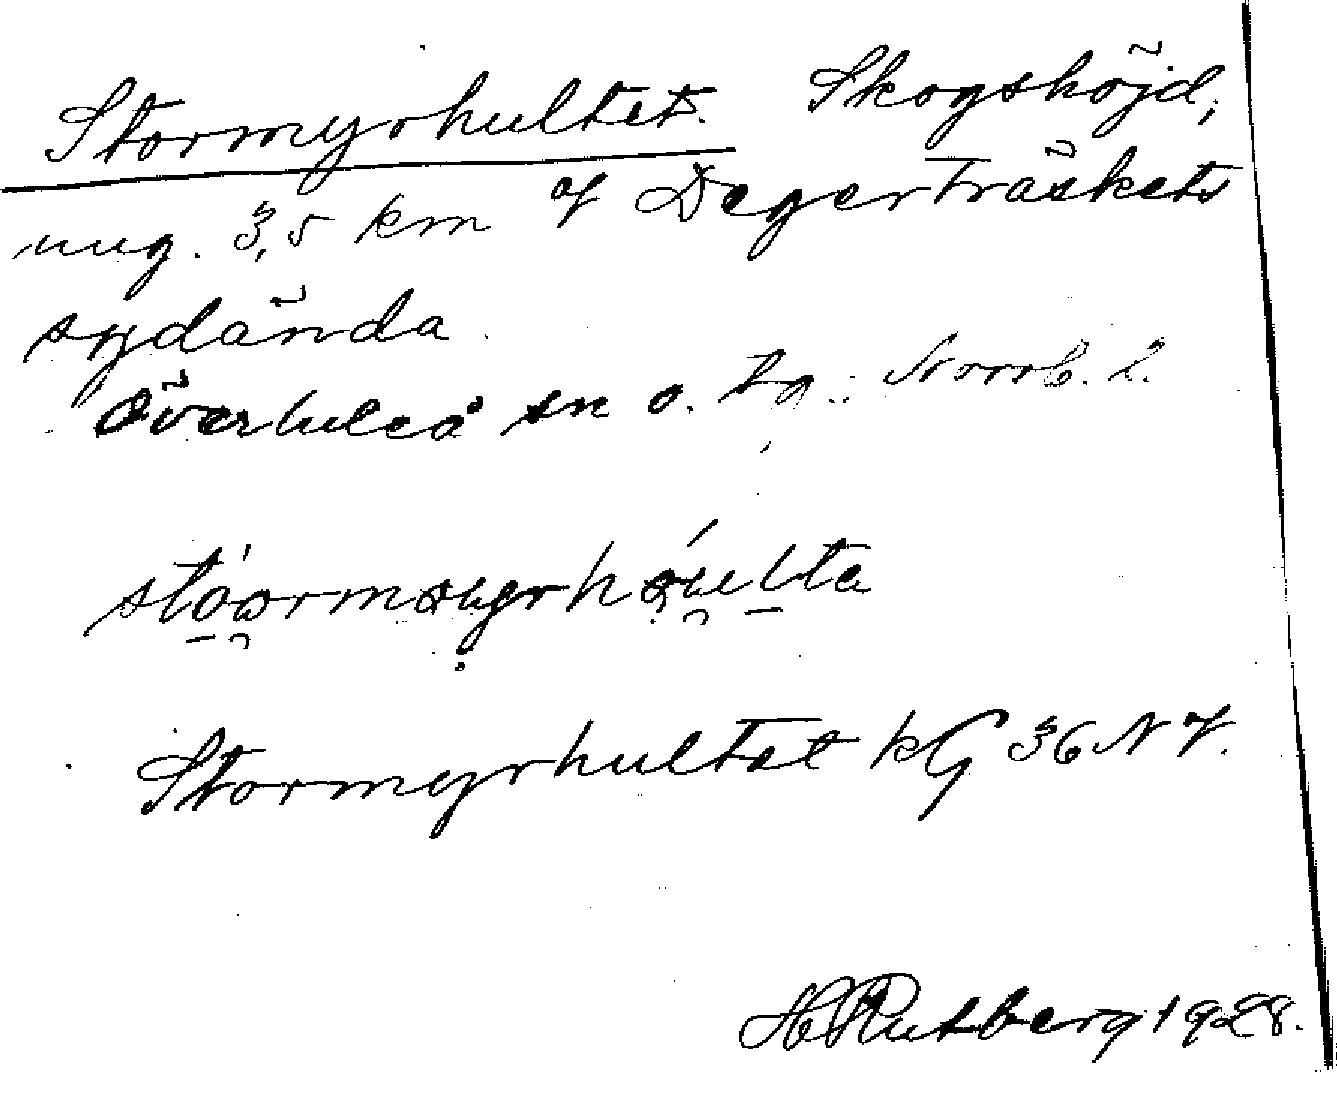 Stormyrhultet. Skogshöjd,
ung. 3,5 km V Degerträskets
sydända
Överluleå sn o. tg. Norrb. l.
Stormyrhultet kG 36 NV.
H Rutberg 1928.